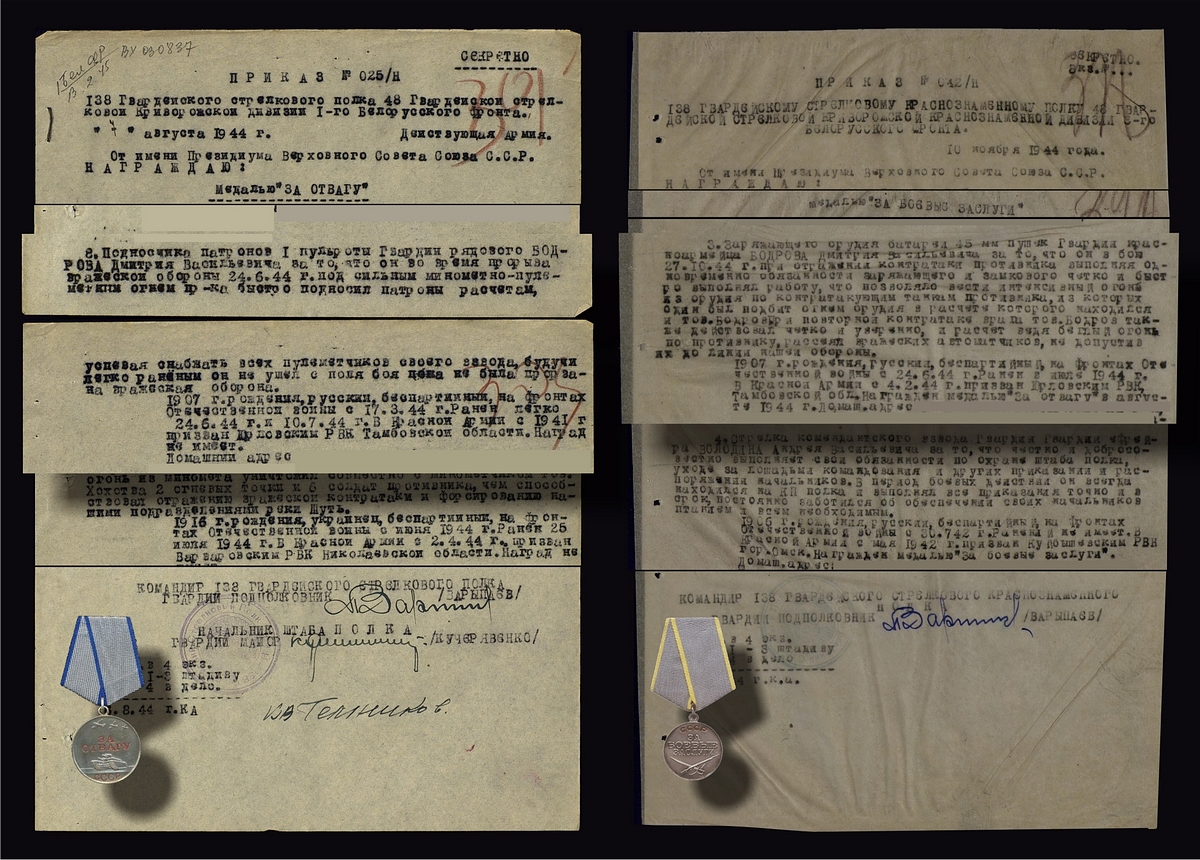 1 Бел фр
13 2 45
вх 030837
СЕКРЕТНО
391
ПРИКАЗ № 025/Н
138 Гвардейского стрелкового полка 48 Гвардейской стрел-
ковой Криворожской дивизии I-го Белорусского фронта.
" 7 " августа 1944 г. Действующая Армия.
От имени Президиума Верховного Совета Союза С.С.Р.
НАГРАЖДАЮ:
Медалью "ЗА ОТВАГУ"
2. Подносчика патронов I пульроты Гвардии рядового БОД-
РОВА Дмитрия Васильевича за то, что он во время прорыва
вражеской обороны 24.6.44 г. под сильным минометно-пуле-
метным огнем пр-ка быстро подносил патроны расчетам,
успевая снабжать всех пулеметчиков своего взвода, будучи
легко раненым он не ушел с поля боя пока не была прорва-
на вражеская оборона.
1907 г.рождения, русский, беспартийный, на фронтах
Отечественной войны с 17.3.44 г. Ранен легко
24.6.44 г. и 10.7.44 г. В Красной Армии с 1941 г
призван Орловским РВК Тамбовской области. Наград
не имеет.
Домашний адрес
огонь из миномета уничтожил
2 огневых точки и 6 солдат противника, чем способ-
ствовал отражению вражеской контратаки и форсированию на-
шими подразделениями реки
1916 г.рождения, украинец, беспартийный, на фрон-
тах Отечественной войны с июня 1944 г. Ранен 25
июля 1944 г. В Красной Армии с 2.4.44 г. призван
Варваровским РВК Николаевской области. Наград не
КОМАНДИР 138 ГВАРДЕЙСКОГО СТРЕЛКОВОГО ПОЛКА
ГВАРДИИ ПОДПОЛКОВНИК /ВАРЫПАЕВ/
НАЧАЛЬНИК ШТАБА ПОЛКА
ГВАРДИИ МАЙОР /КУЧЕРЯВЕНКО/
в 4 экз.
1-3 штадиву
4 в дело.
.8.44 г. КА
ЗА
ОТВАГУ
СССР
СЕКРЕТНО.
Экз.№...
ПРИКАЗ № 042/Н
138 ГВАРДЕЙСКОМУ СТРЕЛКОВОМУ КРАСНОЗНАМЕННОМУ ПОЛКУ 48 ГВАР-
ДЕЙСКОЙ СТРЕЛКОВОЙ КРИВОРОЖСКОЙ КРАСНОЗНАМЕННОЙ ДИВИЗИИ 3-го
БЕЛОРУССКОГО ФРОНТА.
10 ноября 1944 года.
От имени Президиума Верховного Совета Союза С.С.Р.
НАГРАЖДАЮ:
медалью "ЗА БОЕВЫЕ ЗАСЛУГИ"
3. Заряжающего орудия батареи 45 мм пушек Гвардии крас-
ноармейца БОДРОВА Дмитрия Васильевича за то, что он в бою
27.10.44 г. при отражении контратаки противника выполняя од-
новременно обязанности заряжающего и замкового четко и быст
ро выполнял работу, что позволяло вести интенсивный огонь
из орудия по контратакующим танкам противника, из которых
один был подбит огнем орудия в расчете которого находился
и тов.Бодров. При повторной контратаке врага тов.Бодров так-
же действовал четко и уверенно, и расчет ведя беглый огонь
по противнику, рассеял вражеских автоматчиков, не допустив
их до линии нашей обороны.
1907 г.рождения, русский, беспартийный, на фронтах Оте
чественной войны с 24.6.44 г. Ранен в июле 1944 г.
В Красной Армии с 4.2.44 г. призван Орловским РВК
Тамбовской обл. Награжден медалью "За отвагу" в авгус-
те 1944 г. Домаш.адрес
4. Стрелка комендантского взвода Гвардии Гвардии ефрей-
ра ВОЛОДИНА Андрея Васильевича за то, что честно и добросо-
вестно выполняет свои обязанности по охране штаба полка,
уходе за лошадьми командования и других приказаний и рас-
поряжений начальников. В период боевых действий он всегда
находился на КП полка и выполнял все приказания точно и в
срок, постоянно заботился об обеспечении своих начальников
питанием и всем необходимым.
1906 г.рождения, русский, беспартийный, на фронтах
Отечественной войны с 30.7.42 г. Ранений не имеет. В
Красной Армии с мая 1942 г. призван Куйбышевским РВК
гор.Омск. Награжден медалью "За боевые заслуги".
Домаш.адрес:
КОМАНДИР 138 ГВАРДЕЙСКОГО СТРЕЛКОВОГО КРАСНОЗНАМЕННОГО
ПОЛКА
ГВАРДИИ ПОДПОЛКОВНИК /ВАРЫПАЕВ/
в 4 экз.
1 - 3 штадиву
4 в дело
г.к.а.
СССР
ЗА
БОЕВЫЕ
ЗАСЛУГИ